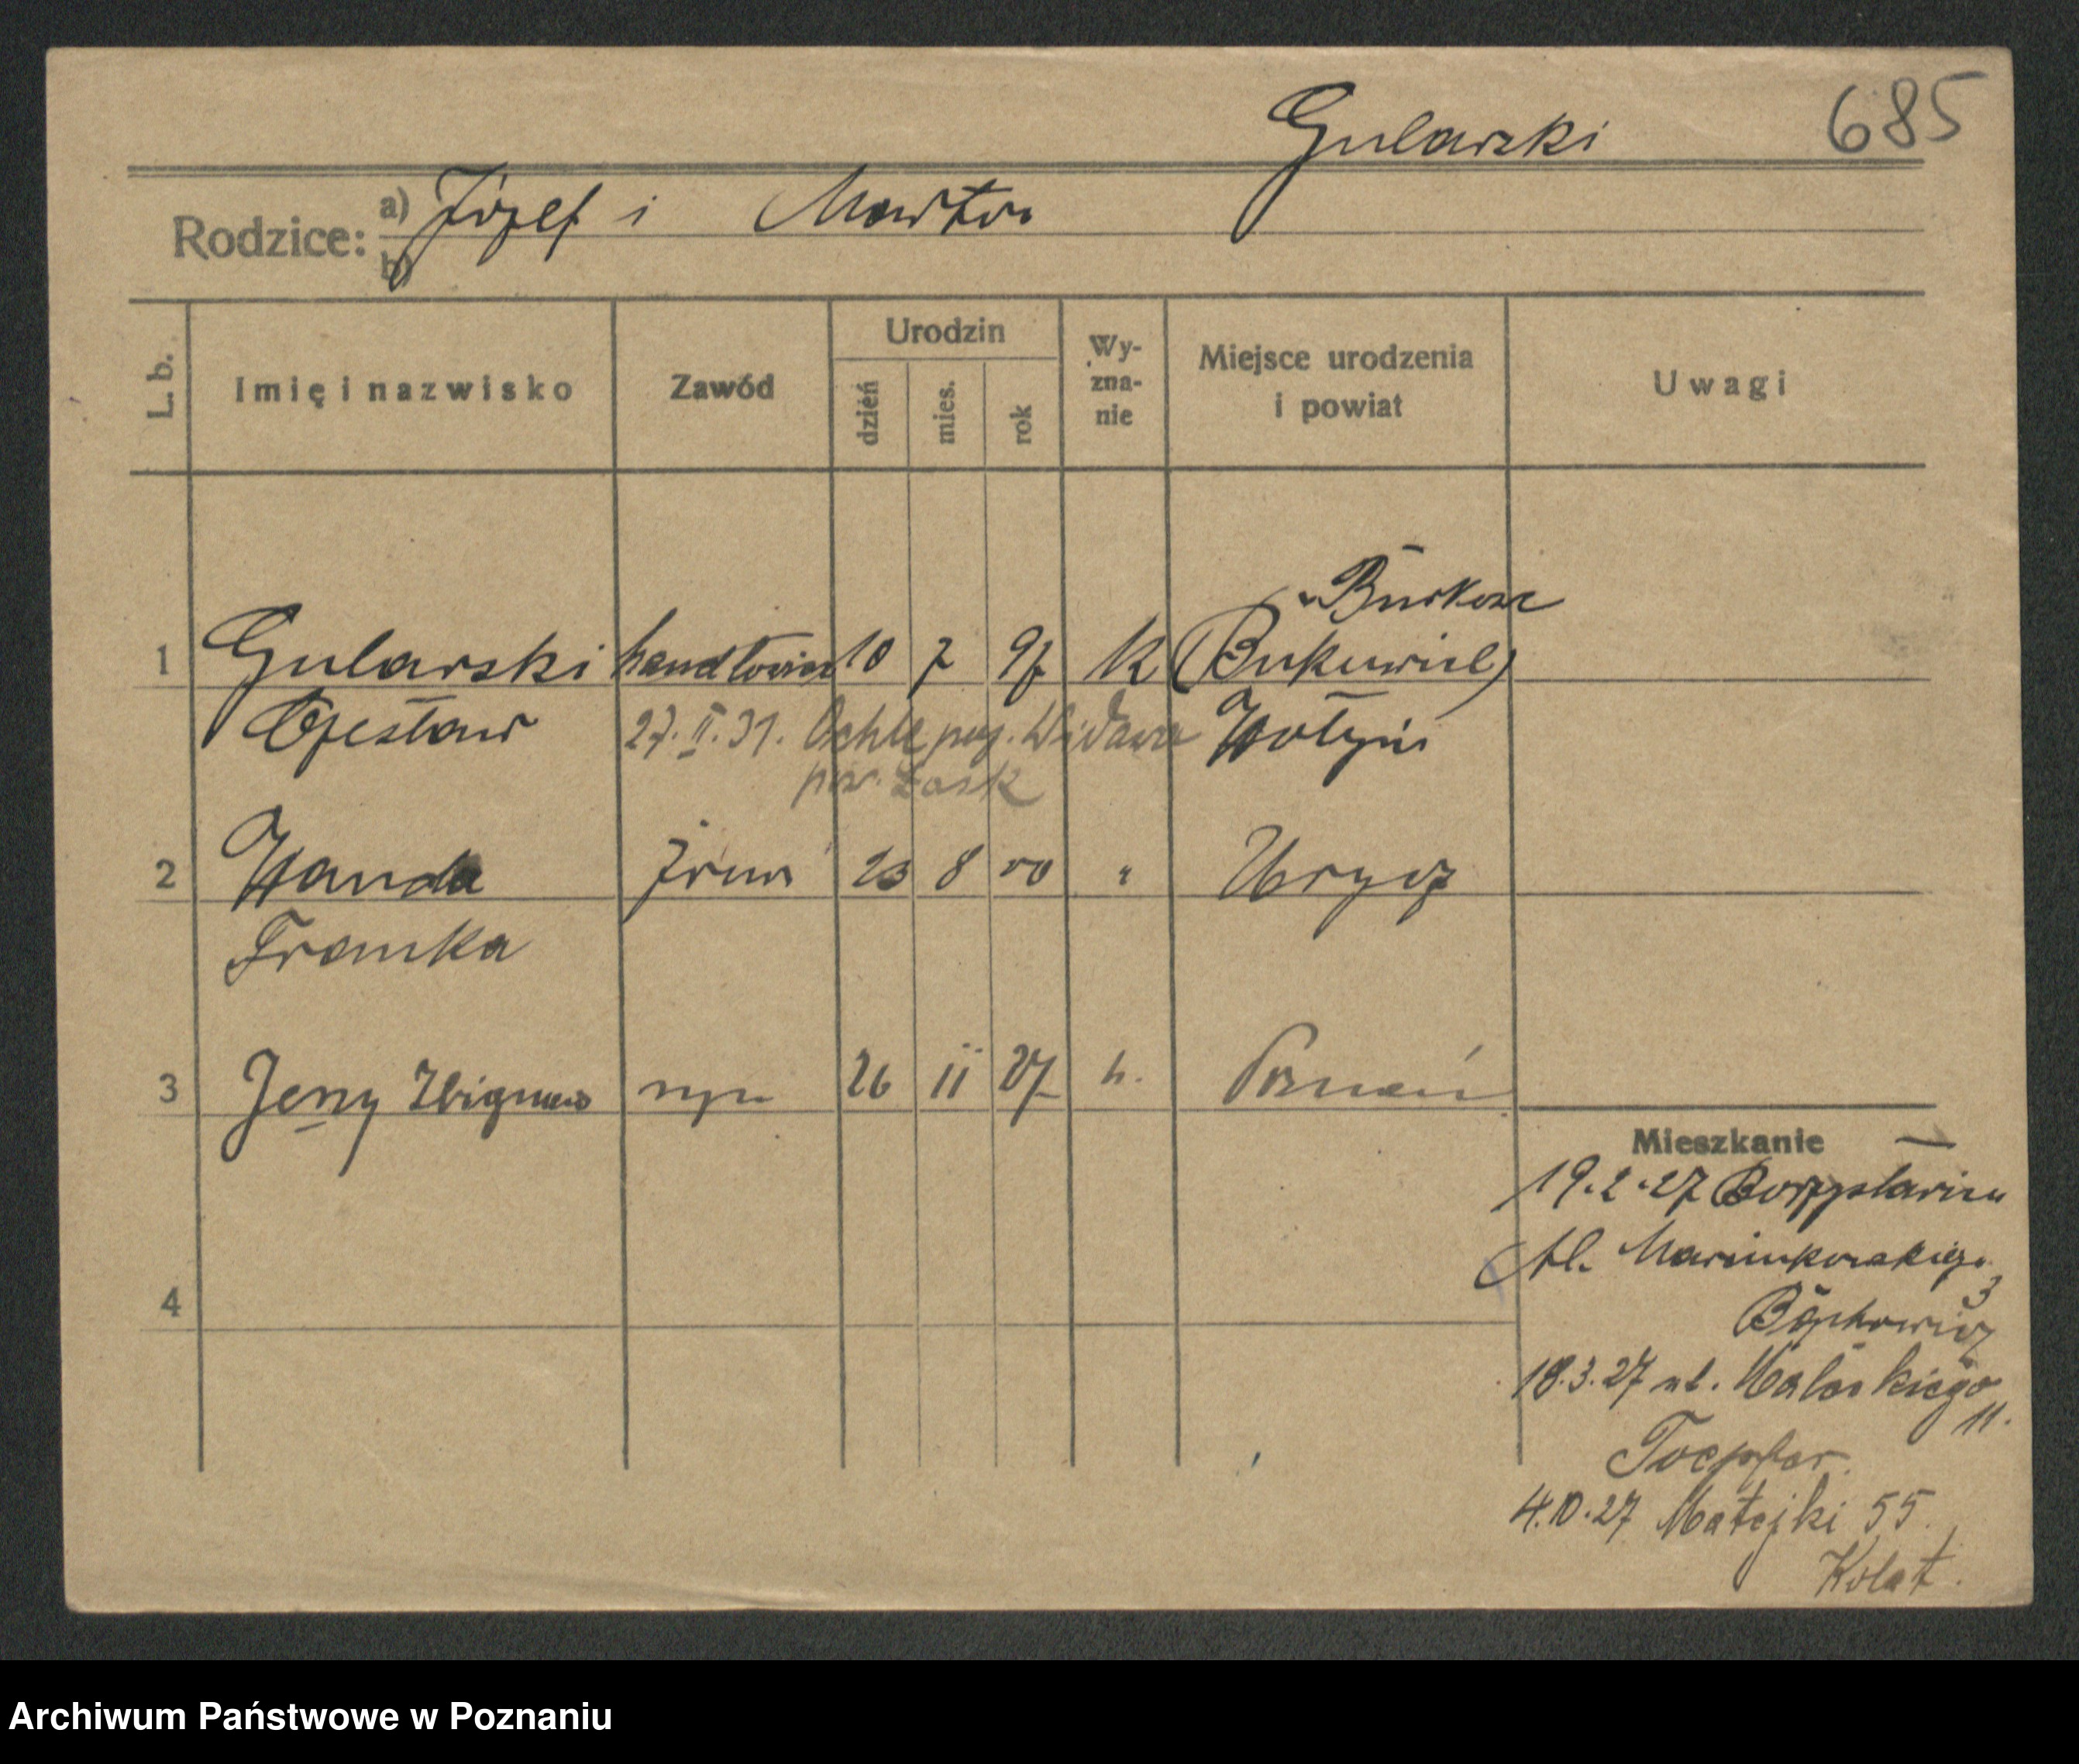 Gularski 685
Rodzice: a) Józef i Marta
b)
L. b. Imię i nazwisko Zawód Urodzin dzień mies. rok Wy-zna-nie Miejsce urodzenia i powiat Uwagi
1 Gularski handlowiec 10 7 97 k (Bukuwiel)
Czesław 27.II.31. Ochle pog. Widawa Wołyń
pow. Łask
2 Wanda żona 23 8 00 " Urycz
Franka
3 Jerzy Zbigniew syn 26 11 27 k. Poznań
Mieszkanie
19.2.27 Borysławiu
Al. Marcinkowskiego 3
18.3.27 ul.
11.
Toepfer.
4
4.10.27 Matejki 55.
Kolat.
Archiwum Państwowe w Poznaniu